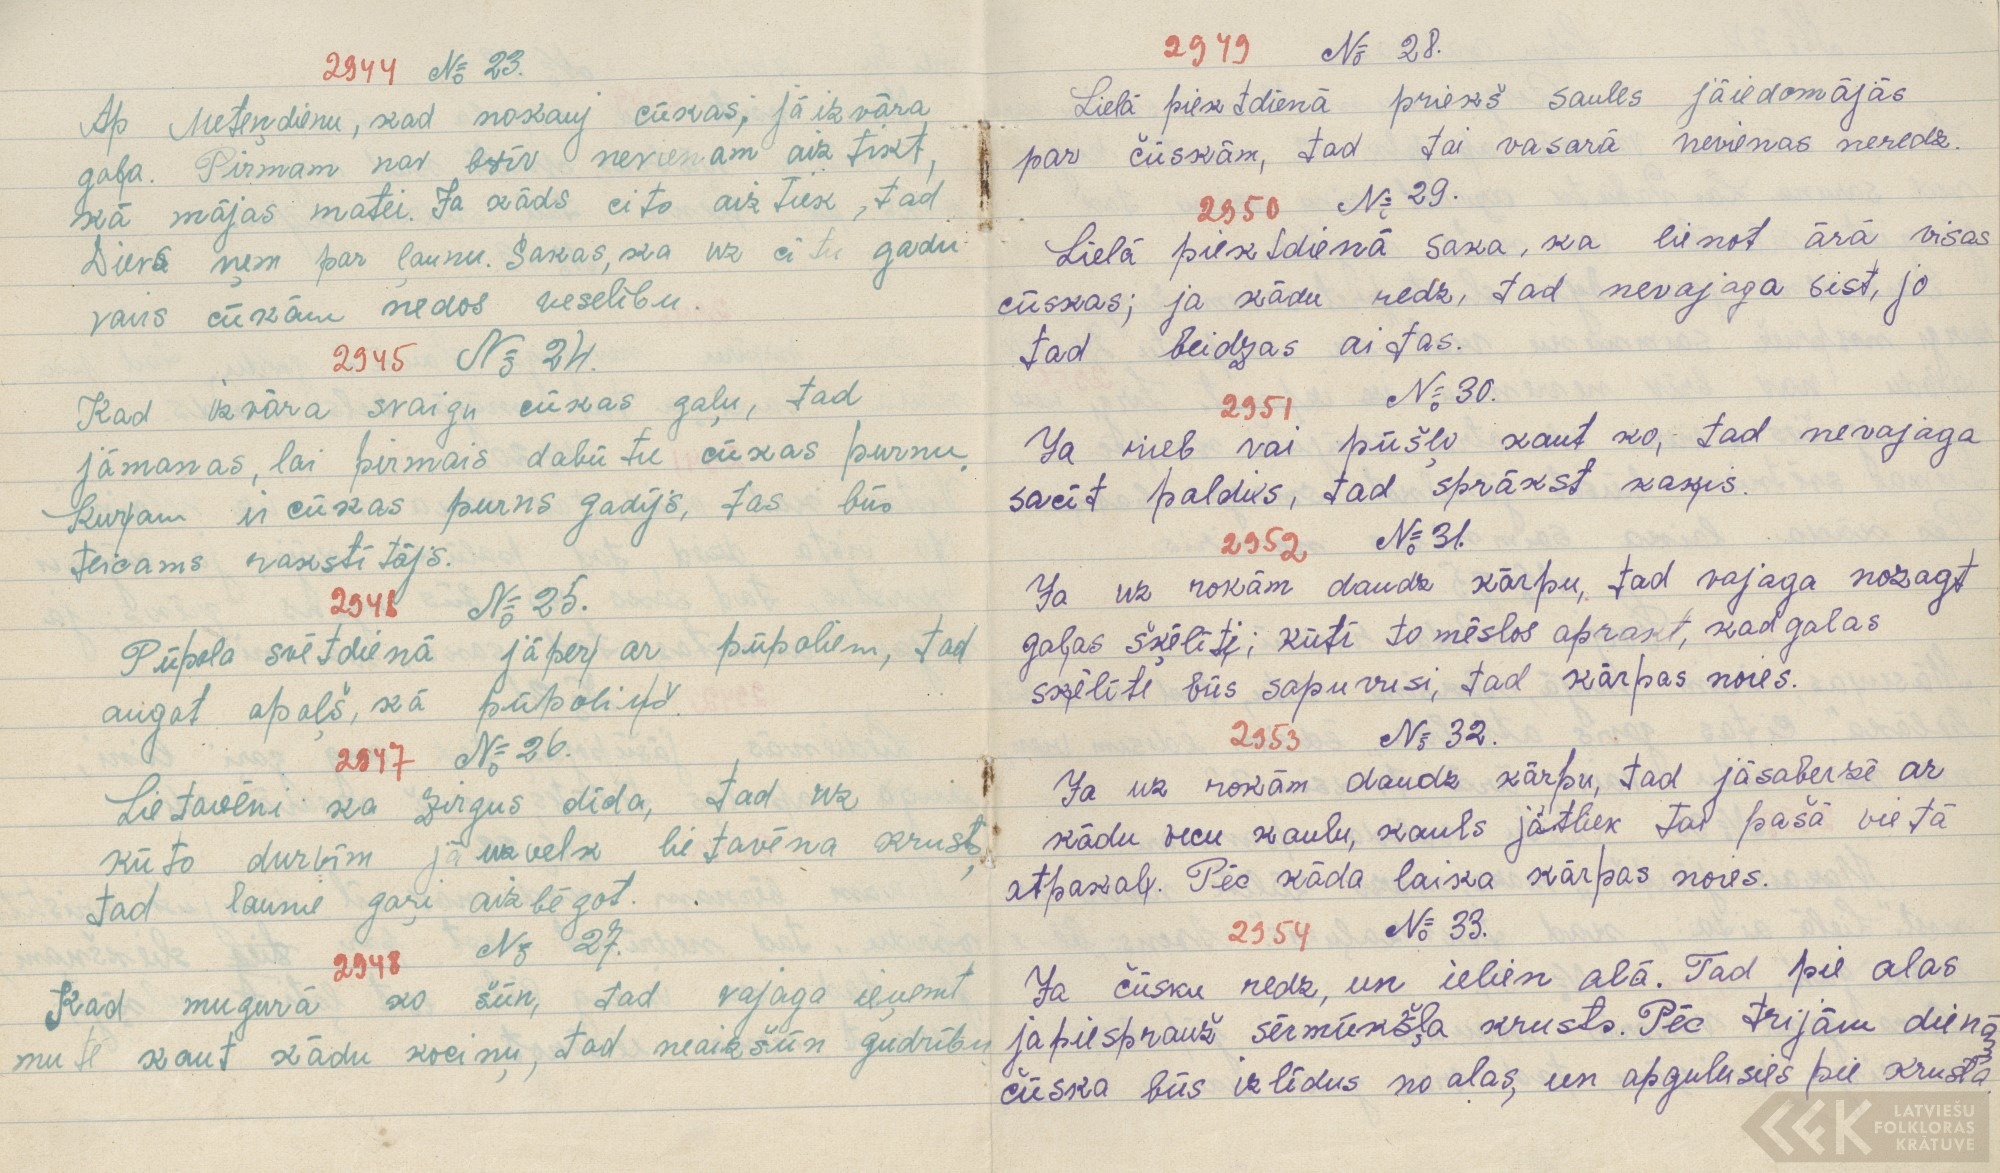 2944 № 23.
Ap Meteņdienu, kad nokauj cūkas, jāizvāra
gaļa. Pirmam nav brīv nevienam aiztikt,
kā mājas matei. Ja kāds cito aiztiek, tad
Dievs ņem par ļaunu. Sakas, ka uz citu gadu
vairs cūkām nedos veselību.
2945 № 24.
Kad izvāra svaigu cūkas gaļu, tad
jāmanas, lai pirmais dabūtu cūkas purnu.
Kuŗam ir cūkas purns gadijs, tas būs
teicams rakstītājs.
2946 № 25.
Pūpola svētdienā jāpeŗ ar pūpoliem, tad
augot apaļš, kā pūpoliņš.
2947 № 26.
Lietavēni ka zirgus dīda, tad uz
kūto durvīm jāuzvelk lietavēna krusts,
tad ļaunie gaŗi aizbēgot.
2948 № 27.
Kad mugurā ko šūn, tad vajaga ieņemt
mutē kaut kādu kociņu, tad neaizšūn gudrību
2949 № 28.
Lielā piektdienā priekš saules jāiedomājās
par čūskām, tad tai vasarā nevienas neredz.
2950 № 29.
Lielā piektdienā saka, ka lienot ārā visas
čūskas; ja kādu redz, tad nevajaga sist, jo
tad beidzas aitas.
2951 № 30.
Ja rieb vai pūšļo kaut ko, tad nevajaga
sacīt paldies, tad sprākst kaķis.
2952 № 31.
Ja uz rokām daudz kārpu, tad vajaga nozagt
gaļas šķēlīti; kūtī to mēslos aprakt, kad gaļas
šķēlīte būs sapuvusi, tad kārpas noies.
2953 № 32.
Ja uz rokām daudz kārpu, tad jāsaberzē ar
kādu vecu kaulu, kauls jātliek tai pašā vietā
atpakaļ. Pēc kāda laika kārpas noies.
2954 № 33.
Ja čūsku redz, un ielien alā. Tad pie alas
japiesprauž sērmūkšļa krusts. Pēc trijām dienām
čūska būs izlīdus no alas, un apgulusies pie krusta
LATVIEŠU
FOLKLORAS
KRĀTUVE